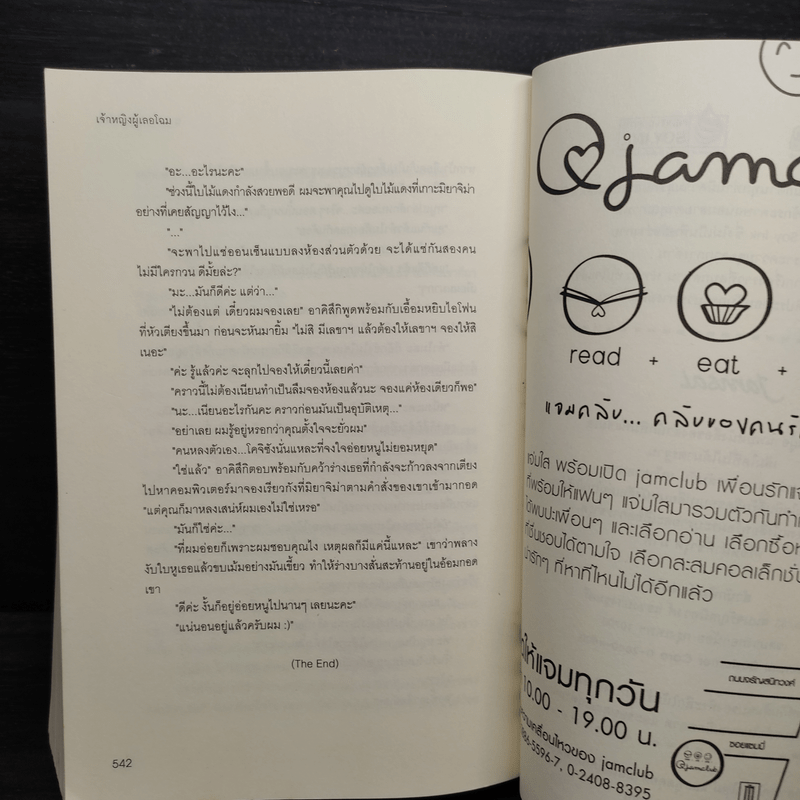 เจ้าหญิงผู้เลอโฉม
"อะ...อะไรนะคะ"
"ช่วงนี้ใบไม้แดงกำลังสวยพอดี ผมจะพาคุณไปดูใบไม้แดงที่เกาะมิยาจิม่า
อย่างที่เคยสัญญาไว้ไง..."
"..."
"จะพาไปแช่ออนเซ็นแบบลงห้องส่วนตัวด้วย จะได้แช่กันสองคน
ไม่มีใครกวน ดีมั้ยล่ะ?"
"มะ...มันก็ดีค่ะ แต่ว่า..."
"ไม่ต้องแต่ เดี๋ยวผมจองเลย" อาคิสึกิพูดพร้อมกับเอื้อมหยิบไอโฟน
ที่หัวเตียงขึ้นมา ก่อนจะหันมายิ้ม "ไม่สิ มีเลขาฯ แล้วต้องให้เลขาฯ จองให้สิ
เนอะ"
"ค่ะ รู้แล้วค่ะ จะลุกไปจองให้เดี๋ยวนี้เลยค่า"
"คราวนี้ไม่ต้องเนียนทำเป็นลืมจองห้องแล้วนะ จองแค่ห้องเดียวก็พอ"
"นะ...เนียนอะไรกันคะ คราวก่อนมันเป็นอุบัติเหตุ..."
"อย่าเลย ผมรู้อยู่หรอกว่าคุณตั้งใจจะยั่วผม"
"คนหลงตัวเอง...โคจิซังนั่นแหละที่จงใจอ่อยหนูไม่ยอมหยุด"
"ใช่แล้ว" อาคิสึกิตอบพร้อมกับคว้าร่างเธอที่กำลังจะก้าวลงจากเตียง
ไปหาคอมพิวเตอร์มาจองเรียวกังที่มิยาจิม่าตามคำสั่งของเขาเข้ามากอด
"แต่คุณก็มาหลงเสน่ห์ผมเองไม่ใช่เหรอ"
"มันก็ใช่ค่ะ..."
"ที่ผมอ่อยก็เพราะผมชอบคุณไง เหตุผลก็มีแค่นี้แหละ" เขาว่าพลาง
งับใบหูเธอแล้วขบเม้มอย่างมันเขี้ยว ทำให้ร่างบางสั่นสะท้านอยู่ในอ้อมกอด
เขา
"ดีค่ะ งั้นก็อยู่อ่อยหนูไปนานๆ เลยนะคะ"
"แน่นอนอยู่แล้วครับผม :)"
(The End)
542
@jamc
read + eat +
แจมคลับ... คลับของคนรั
แจ่มใส พร้อมเปิด jamclub เพื่อนรักแจ
ที่พร้อมให้แฟนๆ แจ่มใสมารวมตัวกันทำ
ได้พบปะเพื่อนๆ และเลือกอ่าน เลือกซื้อห
ที่ชื่นชอบได้ตามใจ เลือกสะสมคอลเล็กชั่
น่ารักๆ ที่หาที่ไหนไม่ได้อีกแล้ว
ให้แจมทุกวัน
10.00 - 19.00 น.
ความเคลื่อนไหวของ jamclub
86-5596-7, 0-2408-8395
ถนนจรัญสนิทวงศ์
ซอยแฮปปี้
@jamclub